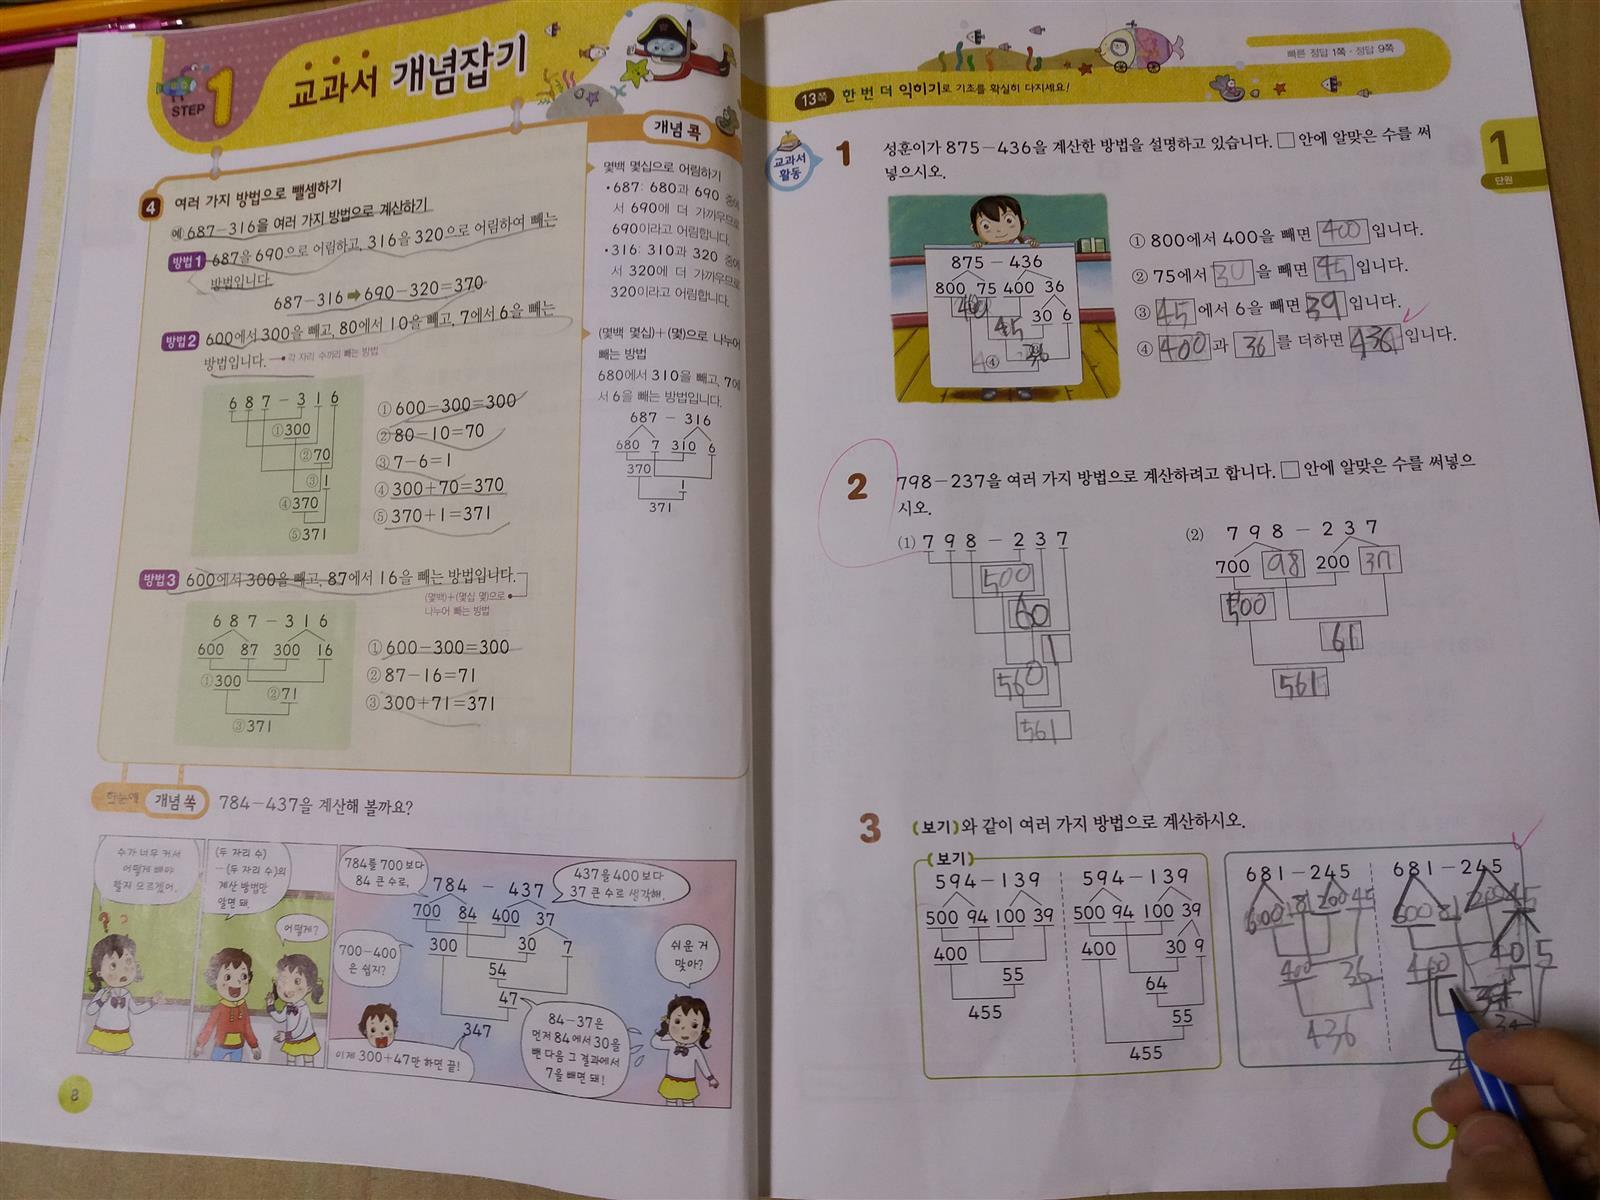 STEP 1 교과서 개념잡기
개념 콕
4 여러 가지 방법으로 뺄셈하기
예 687-316을 여러 가지 방법으로 계산하기
방법1 687을 690으로 어림하고, 316을 320으로 어림하여 빼는
방법입니다.
687-316 ➡ 690-320=370
방법2 600에서 300을 빼고, 80에서 10을 빼고, 7에서 6을 빼는
방법입니다. 각 자리 수끼리 빼는 방법
687-316
①300
②70
③1
④370
⑤371
①600-300=300
②80-10=70
③7-6=1
④300+70=370
⑤370+1=371
방법3 600에서 300을 빼고, 87에서 16을 빼는 방법입니다.
(몇백)+(몇십 몇)으로
나누어 빼는 방법
687-316
600 87 300 16
①300
②71
③371
①600-300=300
②87-16=71
③300+71=371
몇백 몇십으로 어림하기
•687: 680과 690 중에
서 690에 더 가까우므로
690이라고 어림합니다.
•316: 310과 320 중에
서 320에 더 가까우므로
320이라고 어림합니다.
(몇백 몇십)+(몇)으로 나누어
빼는 방법
680에서 310을 빼고, 7에
서 6을 빼는 방법입니다.
687 - 316
680 7 310 6
370
1
371
한눈에 개념 쏙 784-437을 계산해 볼까요?
수가 너무 커서
어떻게 빼야
할지 모르겠어.
(두 자리 수)
-(두 자리 수)의
계산 방법만
알면 돼.
어떻게?
784를 700보다
84 큰 수로,
437을 400보다
37 큰 수로 생각해.
784 - 437
700 84 400 37
300 30 7
54
47
347
700-400
은 쉽지?
쉬운 거
맞아?
이제 300+47만 하면 끝!
84-37은
먼저 84에서 30을
뺀 다음 그 결과에서
7을 빼면 돼!
8
빠른 정답 1쪽·정답 9쪽
13쪽 한 번 더 익히기로 기초를 확실히 다지세요!
1
단원
교과서
활동
1 성훈이가 875-436을 계산한 방법을 설명하고 있습니다. □ 안에 알맞은 수를 써
넣으시오.
875 - 436
800 75 400 36
400 30 6
45
④
① 800에서 400을 빼면 400 입니다.
② 75에서 30 을 빼면 45 입니다.
③ 45 에서 6을 빼면 39 입니다.
④ 400 과 36 를 더하면 436 입니다.
2 798-237을 여러 가지 방법으로 계산하려고 합니다. □ 안에 알맞은 수를 써넣으
시오.
(1) 798-237
500
60
1
560
561
(2) 798-237
700 98 200 37
500
61
561
3 (보기)와 같이 여러 가지 방법으로 계산하시오.
(보기)
594-139
500 94 100 39
400
55
455
594-139
500 94 100 39
400 30 9
64
55
455
681-245
600 81 200 45
400 36
436
681-245
600 81 200 45
40 5
400